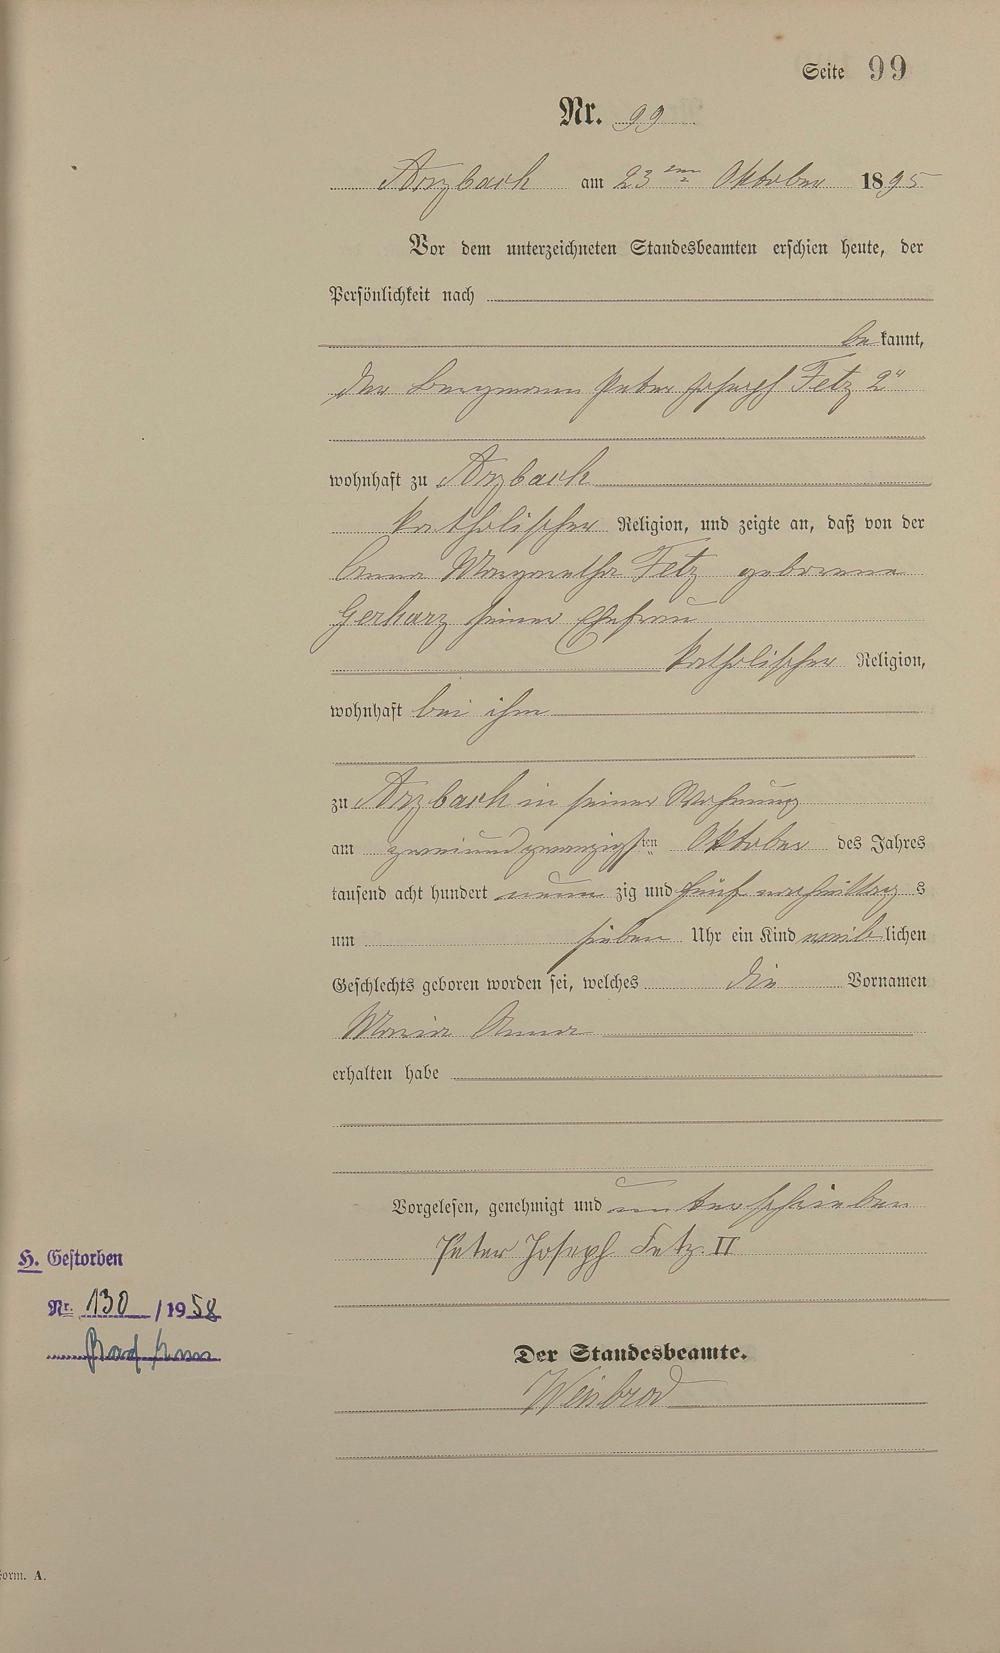 Seite 99
Nr. 99
Arzbach am 23 ten Oktober 1895
Vor dem unterzeichneten Standesbeamten erschien heute, der
Persönlichkeit nach
be kannt,
der Bergmann Peter Joseph Fetz 2"
wohnhaft zu Arzbach
katholischer Religion, und zeigte an, daß von der
Anna Margaretha Fetz geborene
Gerharz seiner Ehefrau
katholischer Religion,
wohnhaft bei ihm
zu Arzbach in seiner Wohnung
am zweiundzwanzigsten Oktober des Jahres
tausend acht hundert neun zig und fünf nachmittag s
um sieben Uhr ein Kind weib lichen
Geschlechts geboren worden sei, welches die Vornamen
Maria Anna
erhalten habe
Vorgelesen, genehmigt und unterschrieben
Peter Joseph Fetz II
H. Gestorben
Nr. 130 / 1958
Bad Ems
Der Standesbeamte.
Weisbrod
Form. A.